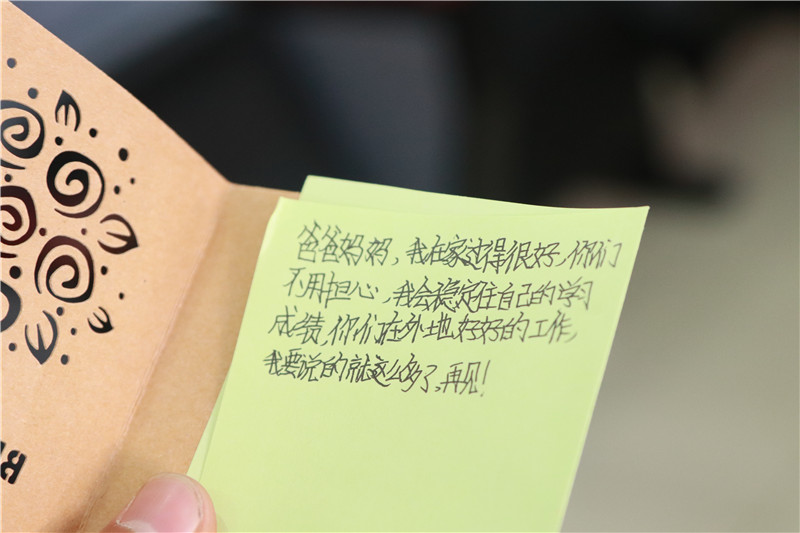 爸爸妈妈，我在家过得很好，你们
不用担心，我会稳定住自己的学习
成绩，你们在外地好好的工作，
我要说的就这么多了，再见！